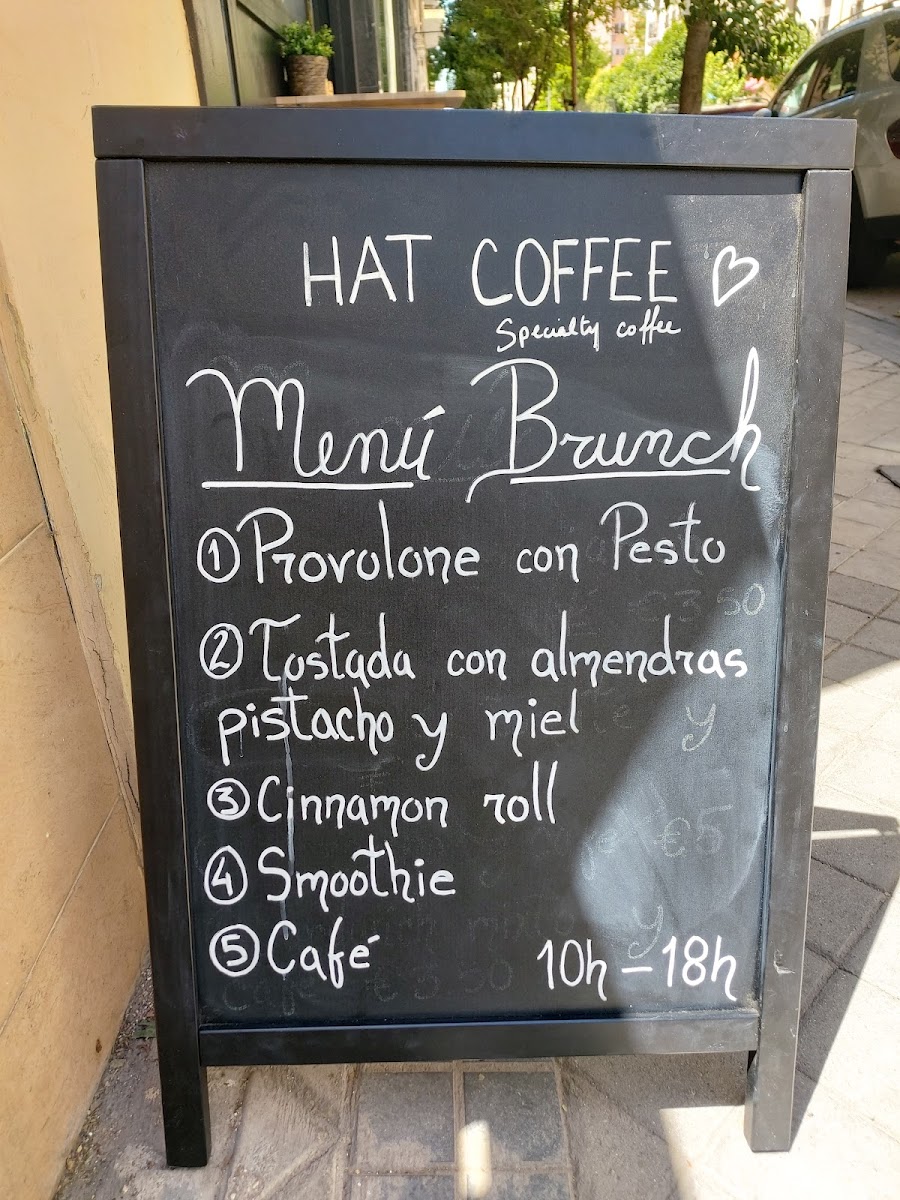 HAT COFFEE
Specialty coffee
Menú Brunch
① Provolone con Pesto
② Tostada con almendras
pistacho y miel
③ Cinnamon roll
④ Smoothie
⑤ Café 10h – 18h